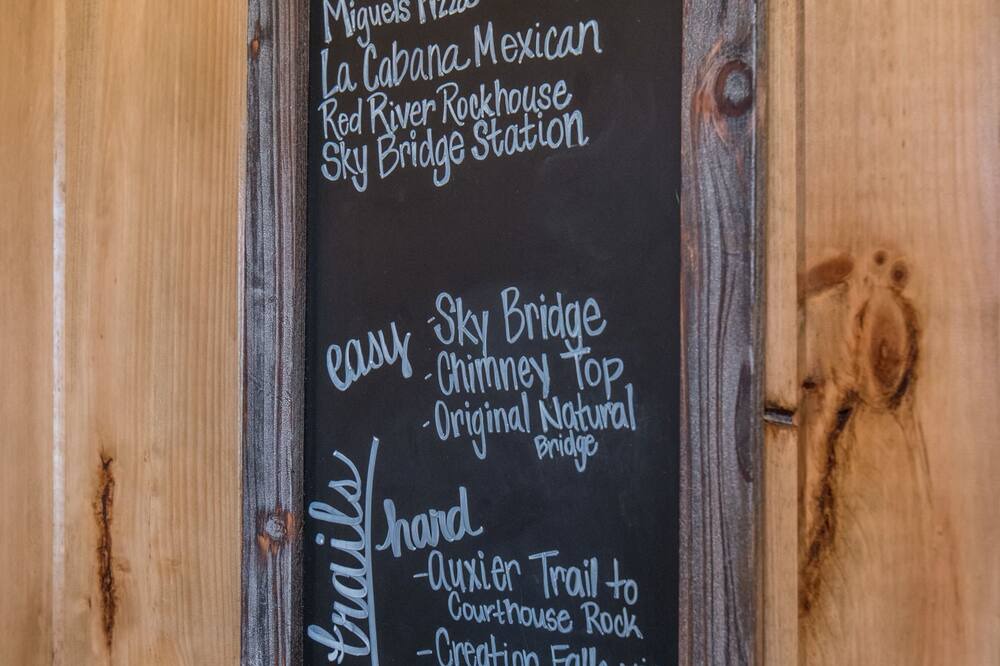 Miguels Pizza
La Cabana Mexican
Red River Rockhouse
Sky Bridge Station
easy
-Sky Bridge
-Chimney Top
-Original Natural
Bridge
trails
hard
-Auxier Trail to
Courthouse Rock
-Creation Falls